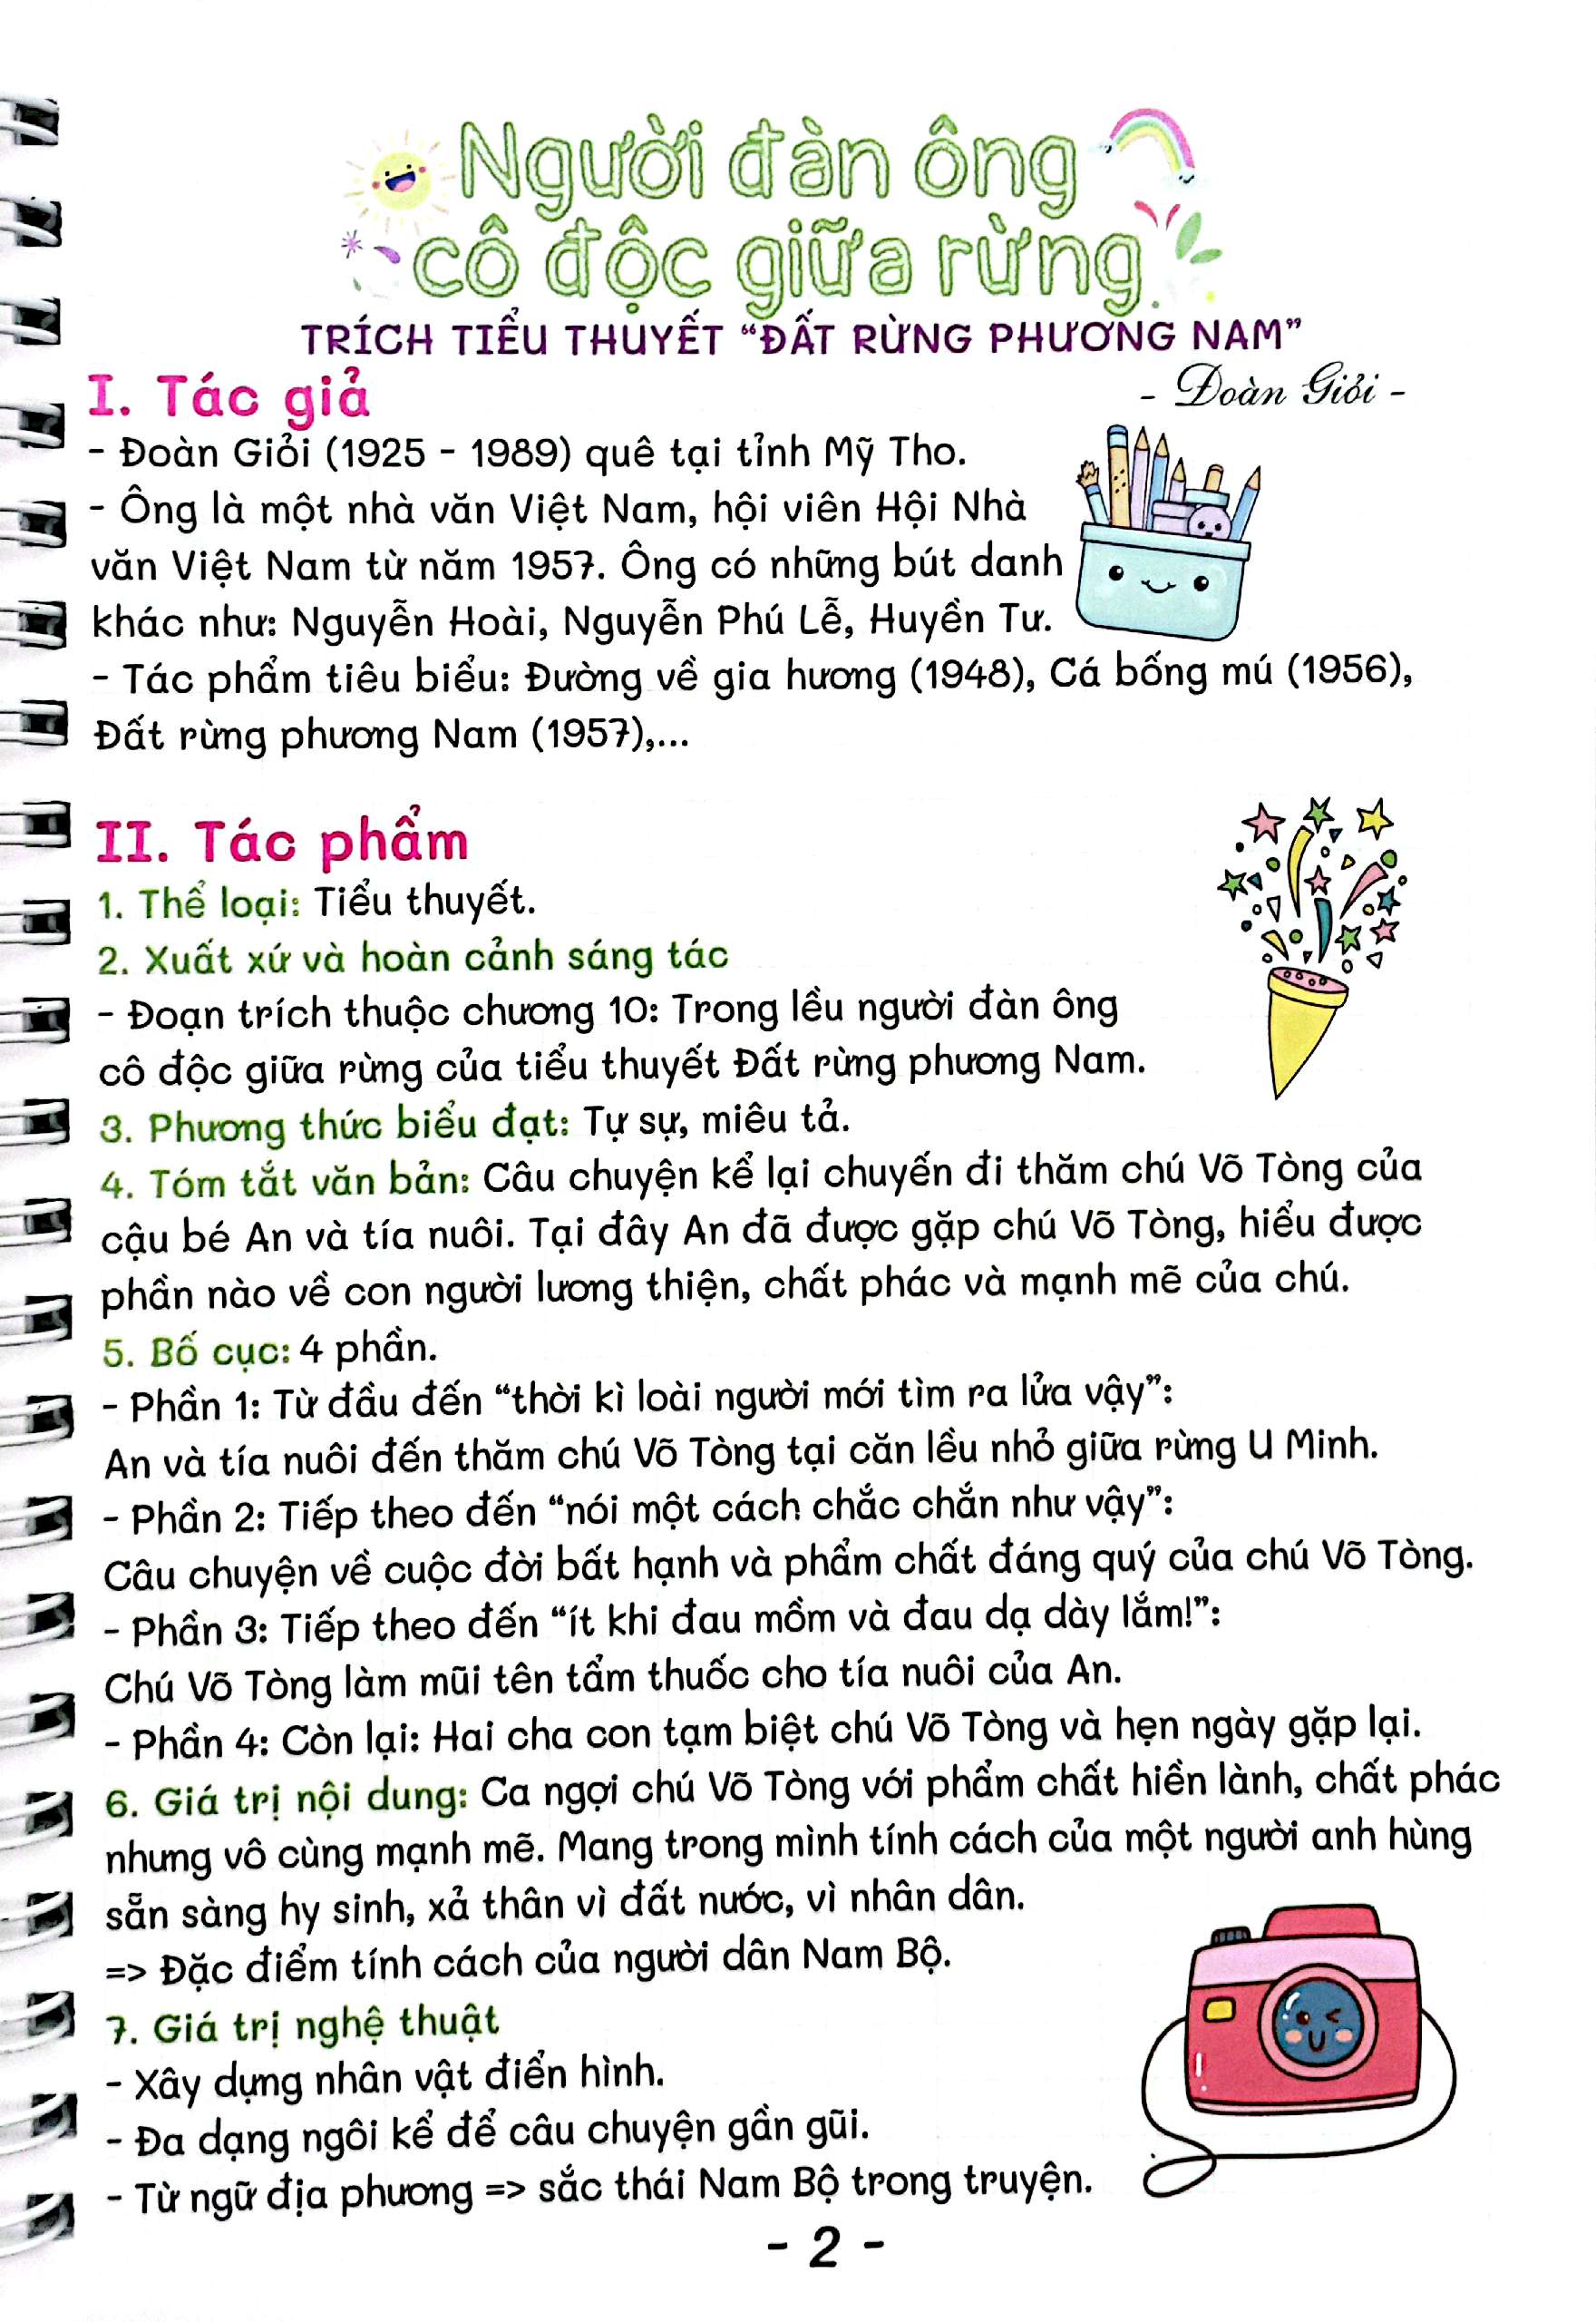 Người đàn ông
cô độc giữa rừng
TRÍCH TIỂU THUYẾT “ĐẤT RỪNG PHƯƠNG NAM”
- Đoàn Giỏi -
I. Tác giả
- Đoàn Giỏi (1925 - 1989) quê tại tỉnh Mỹ Tho.
- Ông là một nhà văn Việt Nam, hội viên Hội Nhà
văn Việt Nam từ năm 1957. Ông có những bút danh
khác như: Nguyễn Hoài, Nguyễn Phú Lễ, Huyền Tư.
- Tác phẩm tiêu biểu: Đường về gia hương (1948), Cá bống mú (1956),
Đất rừng phương Nam (1957),...
II. Tác phẩm
1. Thể loại: Tiểu thuyết.
2. Xuất xứ và hoàn cảnh sáng tác
- Đoạn trích thuộc chương 10: Trong lều người đàn ông
cô độc giữa rừng của tiểu thuyết Đất rừng phương Nam.
3. Phương thức biểu đạt: Tự sự, miêu tả.
4. Tóm tắt văn bản: Câu chuyện kể lại chuyến đi thăm chú Võ Tòng của
cậu bé An và tía nuôi. Tại đây An đã được gặp chú Võ Tòng, hiểu được
phần nào về con người lương thiện, chất phác và mạnh mẽ của chú.
5. Bố cục: 4 phần.
- Phần 1: Từ đầu đến “thời kì loài người mới tìm ra lửa vậy”:
An và tía nuôi đến thăm chú Võ Tòng tại căn lều nhỏ giữa rừng U Minh.
- Phần 2: Tiếp theo đến “nói một cách chắc chắn như vậy”:
Câu chuyện về cuộc đời bất hạnh và phẩm chất đáng quý của chú Võ Tòng.
- Phần 3: Tiếp theo đến “ít khi đau mồm và đau dạ dày lắm!”:
Chú Võ Tòng làm mũi tên tẩm thuốc cho tía nuôi của An.
- Phần 4: Còn lại: Hai cha con tạm biệt chú Võ Tòng và hẹn ngày gặp lại.
6. Giá trị nội dung: Ca ngợi chú Võ Tòng với phẩm chất hiền lành, chất phác
nhưng vô cùng mạnh mẽ. Mang trong mình tính cách của một người anh hùng
sẵn sàng hy sinh, xả thân vì đất nước, vì nhân dân.
=> Đặc điểm tính cách của người dân Nam Bộ.
7. Giá trị nghệ thuật
- Xây dựng nhân vật điển hình.
- Đa dạng ngôi kể để câu chuyện gần gũi.
- Từ ngữ địa phương => sắc thái Nam Bộ trong truyện.
- 2 -